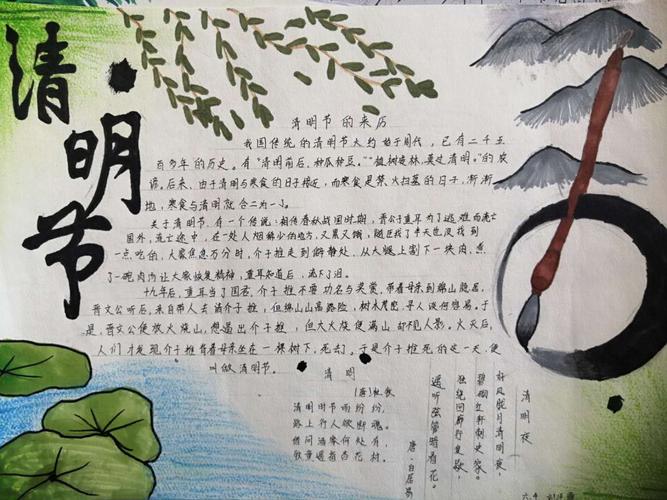 清明节
清明节的来历
我国传统的清明节大约始于周代，已有二千五
百多年的历史。有"清明前后，种瓜种豆。""植树造林，莫过清明。"的农
谚。后来，由于清明与寒食的日子接近，而寒食是禁火扫墓的日子，渐渐
地，寒食与清明就合二为一了。
关于清明节，有一个传说：相传春秋战国时期，晋公子重耳为了逃难而流亡
国外，流亡途中，在一处人烟稀少的地方，又累又饿，随臣找了半天也没找到
一点吃的，大家焦急万分时，介子推走到僻静处，从大腿上割下一块肉，煮
了一碗肉汤让大家恢复精神，重耳知道后，流下了泪。
十九年后，重耳当了国君，介子推不要功名与关爱，带着母亲到绵山隐居，
晋文公听后，亲自带人去请介子推，但绵山山高路险，树木茂密，寻人谈何容易。于
是，晋文公便放火烧山，想逼出介子推，但大火烧便满山却不见人影。火灭后，
人们才发现介子推背着母亲坐在一棵树下，死去了。于是介子推死的这一天，便
叫做清明节。
清明
(唐)杜牧
清明时节雨纷纷，
路上行人欲断魂。
借问酒家何处有，
牧童遥指杏花村。
清明夜
好风胧月清明夜，
碧砌红轩刺史家。
独绕回廊行复歇，
遥听弦管暗看花。
唐·白居易
六.4